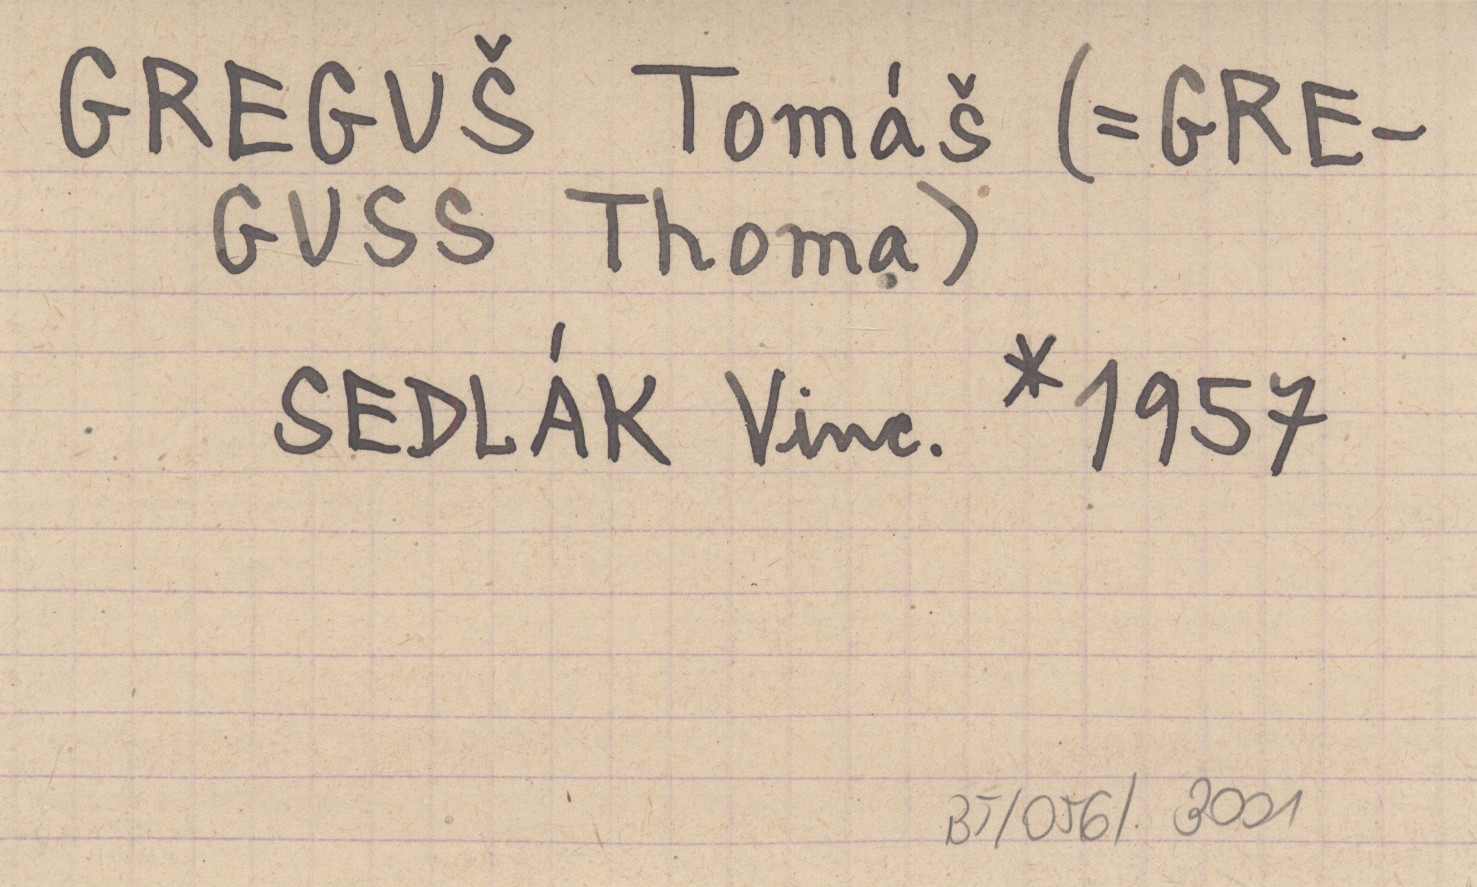 GREGUŠ Tomáš (=GRE-
GUSS Thoma)
SEDLÁK Vinc. *1957
BJ/056/. 3001